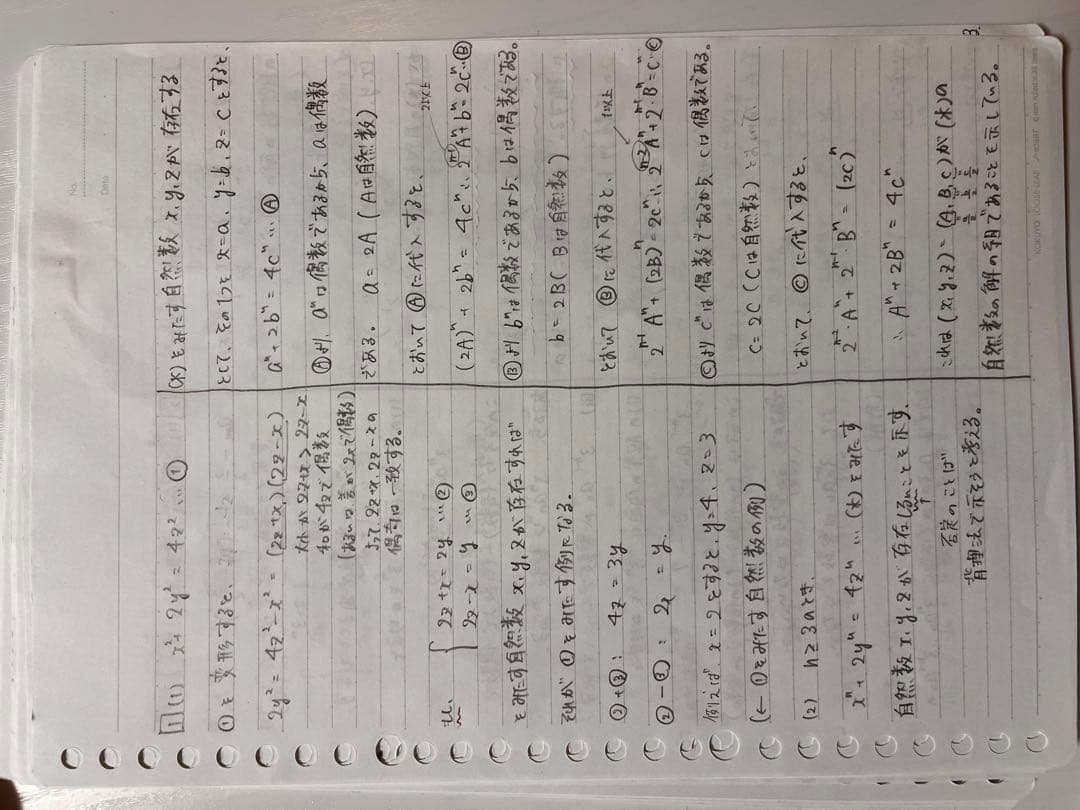 1 (1) x²+2y²=4z² … ①
①を変形すると、
2y²=4z²-x²=(2z+x)(2z-x)
大小が 2z+x > 2z-x
和が4zで偶数
(あるいは差が2xで偶数)
よって 2z+x, 2z-xの
偶奇は一致する。
もし、
2z+x=2y …②
2z-x=y …③
をみたす自然数 x, y, zが存在すれば
それが①をみたす例になる。
②+③: 4z=3y
②-③: 2x=y
例えば、x=2とすると、y=4、z=3
(← ①をみたす自然数の例)
(2) n≥3のとき、
xⁿ+2yⁿ=4zⁿ …(*)をみたす
自然数x, y, zが存在しないことを示す。
否定のことば
背理法で示そうと考える。
(*)をみたす自然数x, y, zが存在する
として、その1つを x=a, y=b, z=cとすると、
aⁿ+2bⁿ=4cⁿ … Ⓐ
Ⓐより、aⁿは偶数であるから、aは偶数
である。a=2A (Aは自然数)
とおいてⒶに代入すると、
2以上
(2A)ⁿ+2bⁿ=4cⁿ ∴ 2ⁿ⁻¹Aⁿ+bⁿ=2cⁿ…Ⓑ
Ⓑよりbⁿは偶数であるから、bは偶数である。
b=2B (Bは自然数)
とおいてⒷに代入すると、
1以上
2ⁿ⁻¹Aⁿ+(2B)ⁿ=2cⁿ ∴ 2ⁿ⁻²Aⁿ+2ⁿ⁻¹Bⁿ=cⁿ…Ⓒ
Ⓒよりcⁿは偶数であるから、cは偶数である。
c=2C (Cは自然数)
とおいて、Ⓒに代入すると、
2ⁿ⁻²・Aⁿ+2ⁿ⁻¹・Bⁿ=(2C)ⁿ
∴ Aⁿ+2Bⁿ=4Cⁿ
これは(x, y, z)=(A, B, C)が(*)の
a/2 b/2 c/2
自然数の解の1組であることを示している。
3